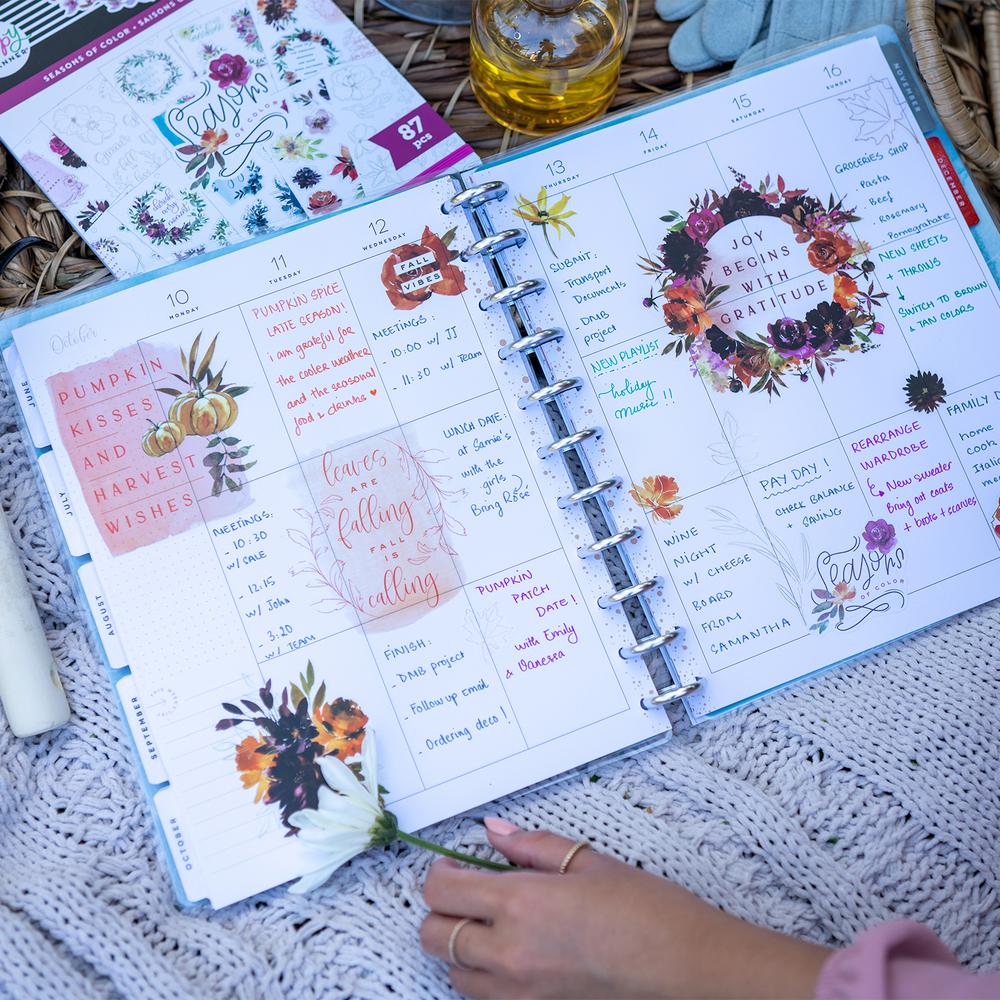 PLANNER
SEASONS OF COLOR • SAISONS
Seasons
OF COLOR
87
pcs
October
10
MONDAY
PUMPKIN
KISSES
AND
HARVEST
WISHES
MEETINGS:
- 10:30
w/ SALE
- 12:15
w/ John
- 3:20
w/ TEAM
11
TUESDAY
PUMPKIN SPICE
LATTE SEASON!
i am grateful for
the cooler weather
and the seasonal
food & drinks ♥
leaves
ARE
falling
FALL
IS
calling
FINISH:
- DMB project
- Follow up Email
- Ordering deco!
12
WEDNESDAY
FALL
VIBES
MEETINGS:
- 10:00 w/ JJ
- 11:30 w/ Team
LUNCH DATE:
at Samie's
with the
girls
Bring Rosé
PUMPKIN
PATCH
DATE!
with Emily
& Vanessa
13
THURSDAY
SUBMIT:
Transport
Documents
- DMB
project
NEW PLAYLIST
holiday
music!!
WINE
NIGHT
w/ CHEESE
BOARD
FROM
SAMANTHA
14
FRIDAY
JOY
BEGINS
WITH
GRATITUDE
PAY DAY!
CHECK BALANCE
+ SAVING
15
SATURDAY
REARRANGE
WARDROBE
New sweater
Bring out coats
+ boots + scarves
Seasons
OF COLOR
16
SUNDAY
GROCERIES SHOP
- Pasta
- Beef
- Rosemary
Pomegranate
NEW SHEETS
+ THROWS
↓
SWITCH TO BROWN
& TAN COLORS
FAMILY
home
cook
JUNE
JULY
AUGUST
SEPTEMBER
OCTOBER
NOVEMBER
DECEMBER